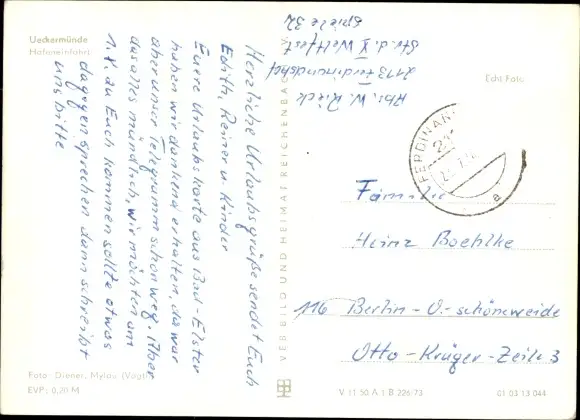 Ueckermünde
Hafeneinfahrt
Herzliche Urlaubsgrüße sendet Euch
Edith, Reiner u. Kinder
Eure Urlaubskarte aus Bad-Elster
haben wir dankend erhalten, da war
aber unser Telegramm schon weg. Aber
das alles mündlich, wir möchten am
1.8. zu Euch kommen sollte etwas
dagegen sprechen dann schreibt
uns bitte
Abs. W. Rieck
2173 Ferdinandshof
Str. d. X Weltfest
spiele 32
Echt Foto
FERDINAN
a
Familie
Heinz Boehlke
116 Berlin - O.-schöneweide
Otto-Krüger-Zeile 3
VEB BILD UND HEIMAT REICHENBACH i. V.
Foto: Diener, Mylau (Vogtl.)
EVP: 0,20 M
V 11 50 A 1 B 226/73
01 03 13 044